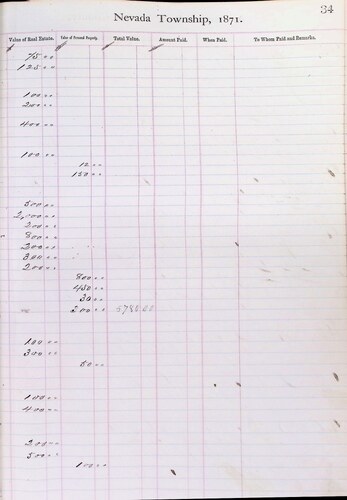 34
Nevada Township, 1871.
Value of Real Estate. Value of Personal Property. Total Value. Amount Paid. When Paid. To Whom Paid and Remarks.
75 00
125 00
100 00
200 00
400 00
100 00
12 00
150 00
500 00
2,000 00
200 00
800 00
200 00
300 00
200 00
800 00
450 00
30 00
200 00
100 00
300 00
50 00
100 00
400 00
200 00
500 00
100 00